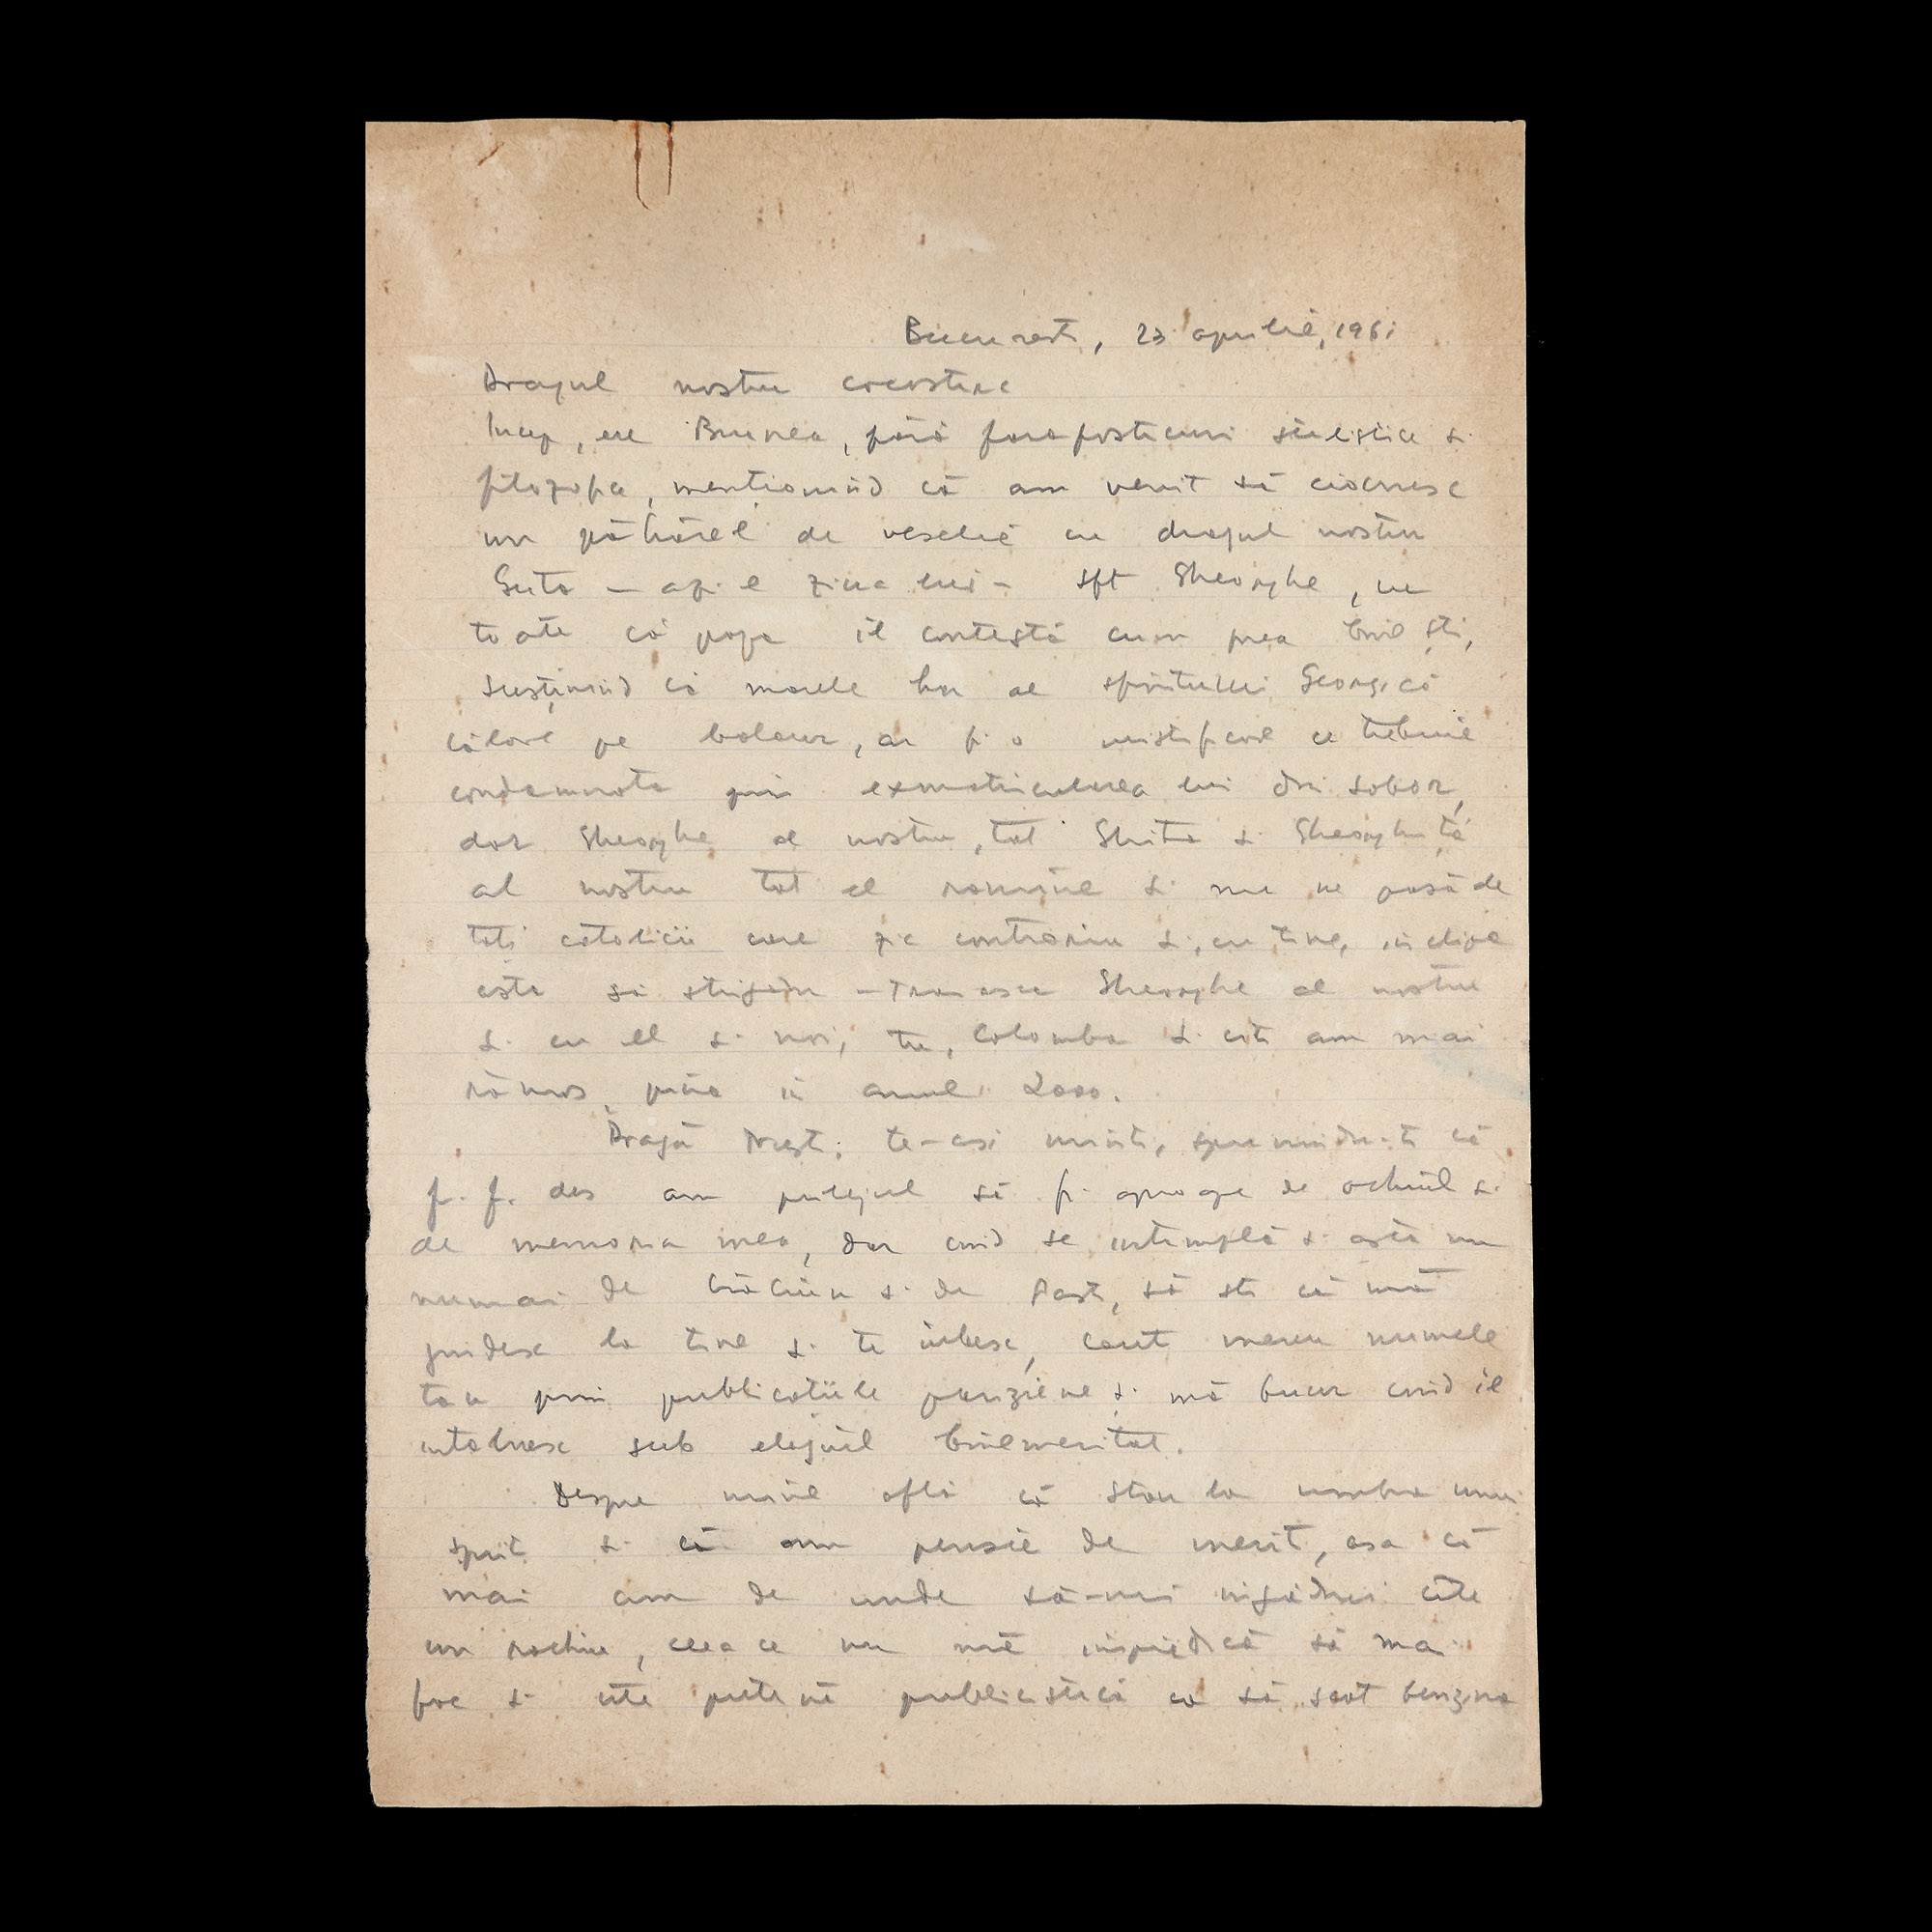 București, 23 aprilie, 1961
Dragul nostru cocostirc
Incep, cu Bunea, fără farafasticuri stilistice și
filozofice, mentionind că am venit să ciocnesc
un păhărel de veselie cu dragul nostru
Guță – azi e ziua lui – Sft Gheorghe, cu
toate că papa il contestă cum prea bine știi,
susținind că marele har al spiritului Georgică
călare pe balaur, ar fi o mistificare ce trebuie
condamnata prin exmatricularea lui din sobor,
dar Gheorghe al nostru, tot Ghiță și Gheorghiță
al nostru tot el ramine și nu ne pasă de
toți catolicii care zic contrariu și, cu tine, in clipa
asta să strigăm – Traiasca Gheorghe al nostru
și cu el și noi, tu, Colomba și ciți am mai
rămas, pina in anul 2000.
Dragă te-ași minți, spunindu-ti că
f. f. des am prilejul să fii aproape de ochiul și
de memoria mea, dar cind se intimplă și asta nu
numai de Crăciun și de Paști, să stii că mă
gindesc la tine și te iubesc, caut mereu numele
tau prin publicațiile pariziene și mă bucur cind il
intalnesc sub elogiul binemeritat.
Despre mine află că stau la umbra unui
șpriț și că am pensie de merit, asa că
mai am de unde să-mi ingădui cite
un rachiu, ceea ce nu mă impiedică să mai
fac și cite puțină publicistică ca să scot benzina